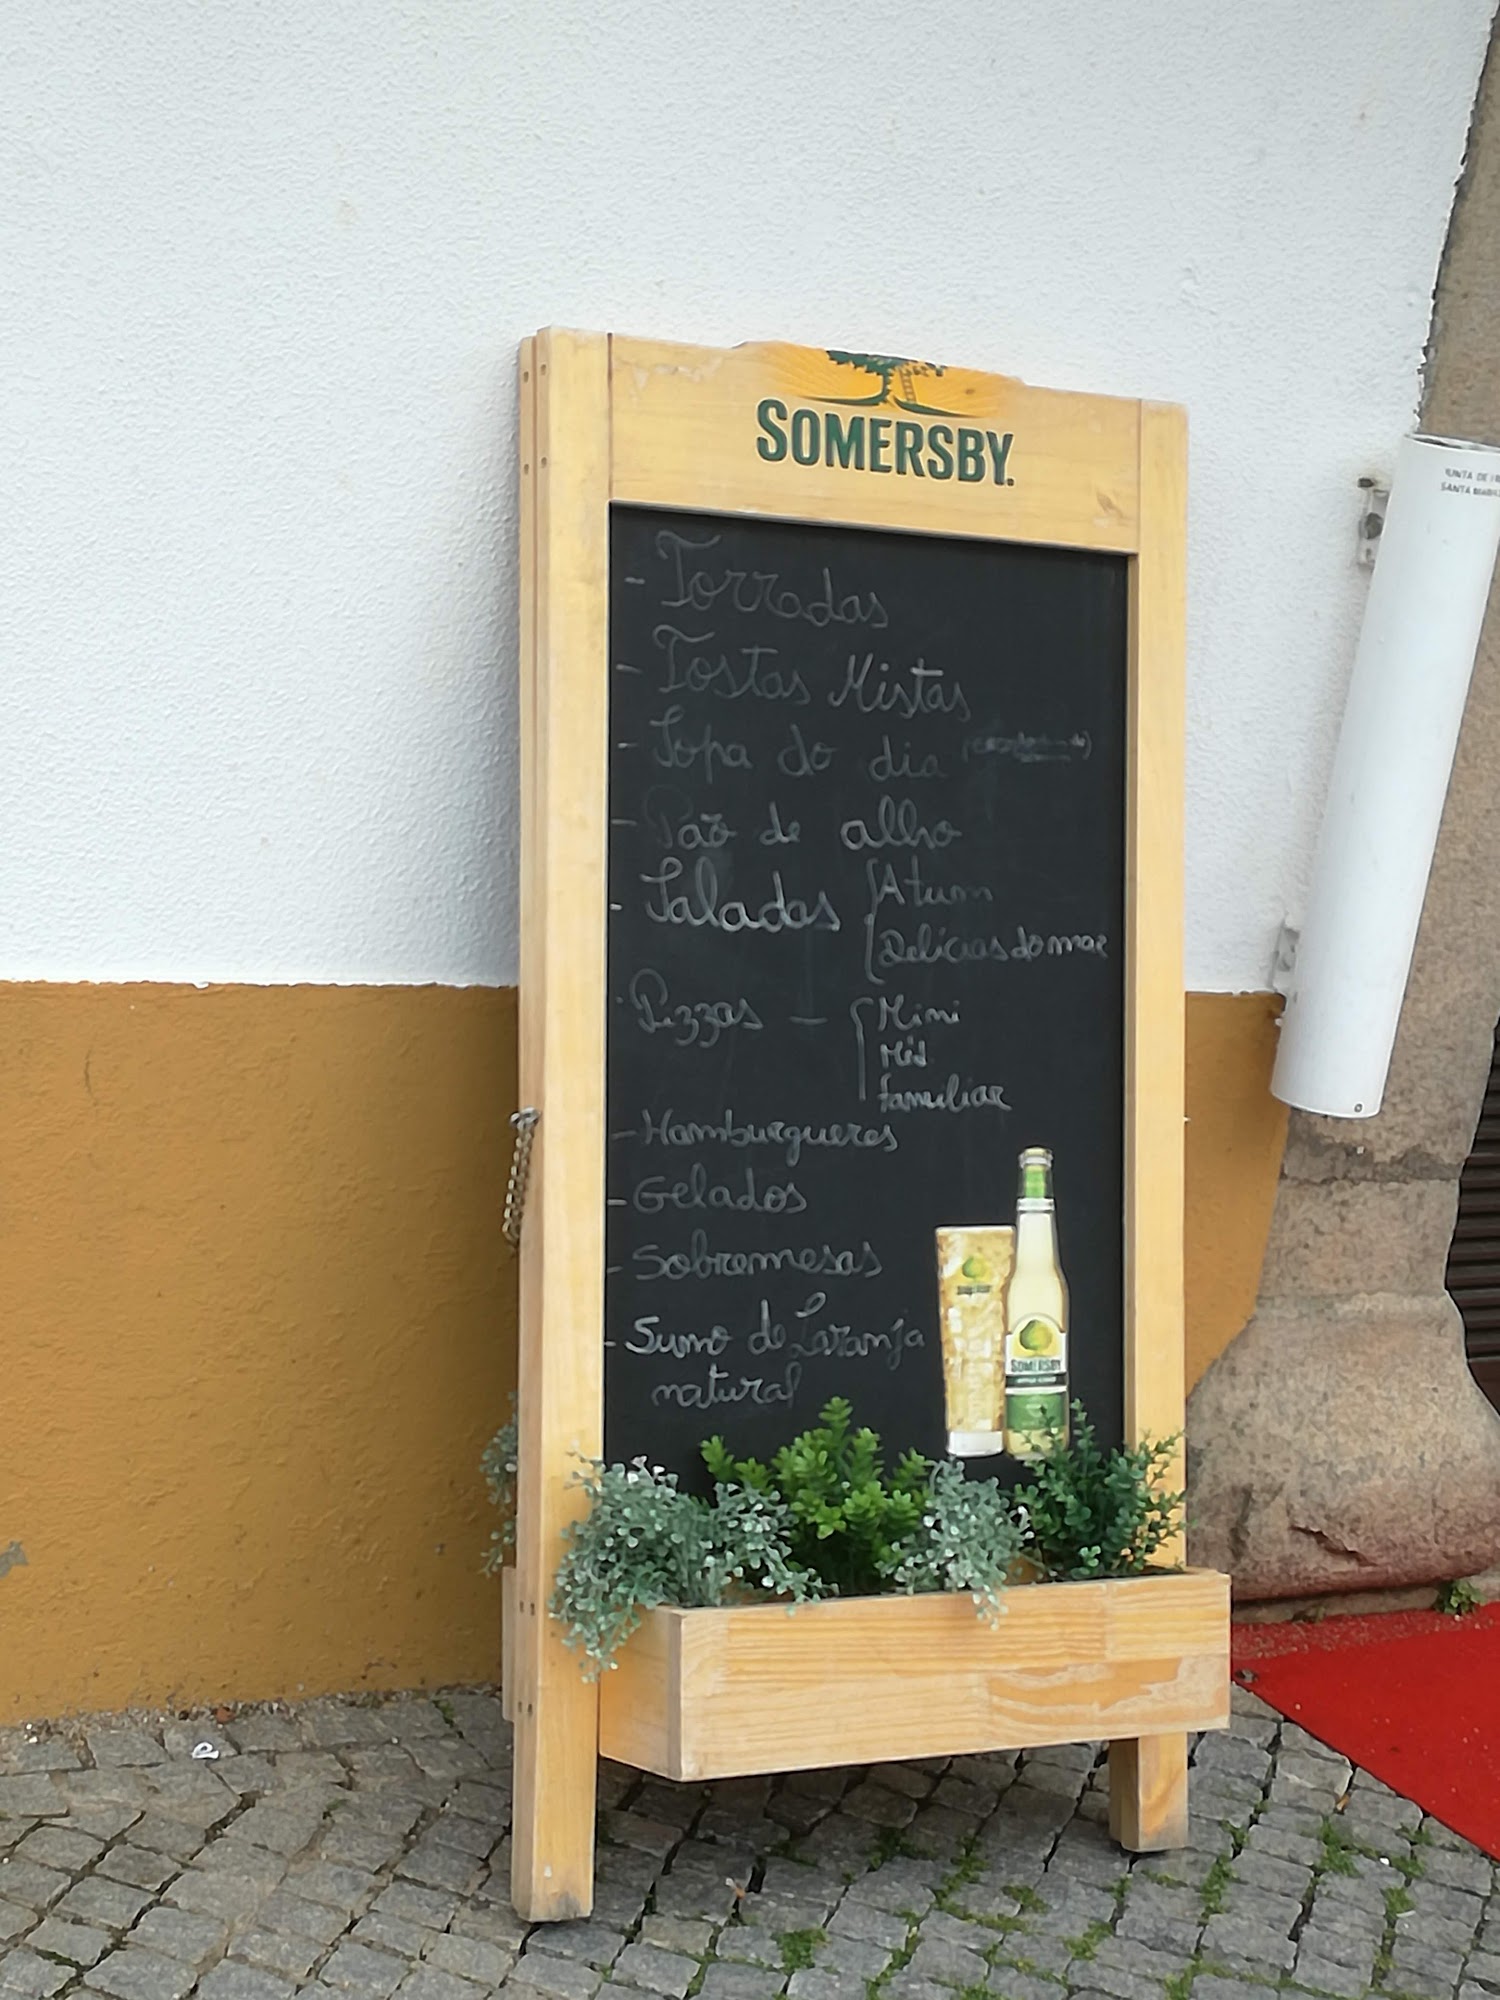 SOMERSBY.
- Torradas
- Tostas Mistas
- Sopa do dia
- Pão de alho
- Saladas { Atum
Delícias do mar
- Pizzas - { Mini
Méd.
familiar
- Hamburgueres
- Gelados
- Sobremesas
- Sumo de Laranja
natural
SOMERSBY
SANTA